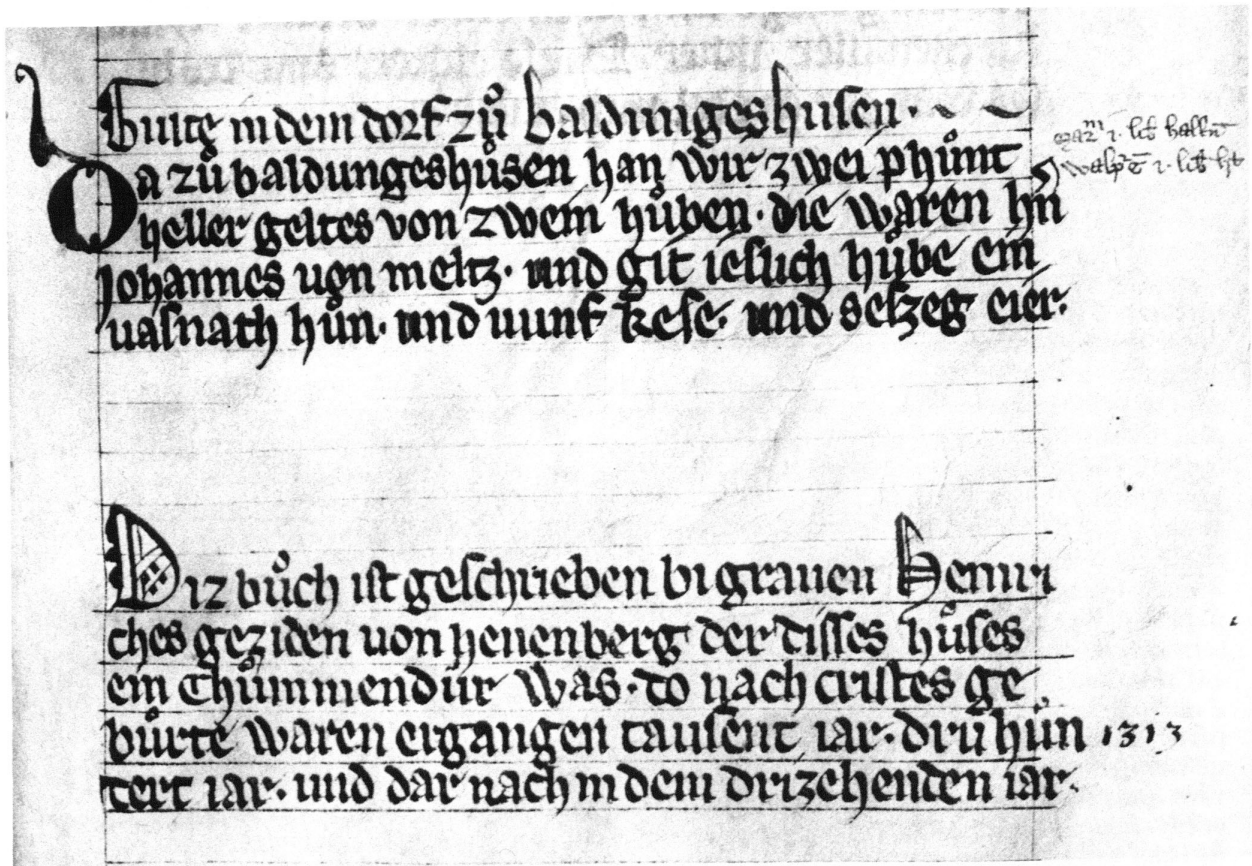 Gulte in dem dorf zů baldungeshusen.
Da zů baldungeshůsen han wir zwei phůnt
heller geltes von zwein hůben. die waren hñ
Johannes uon meltz. und git ieslich hůbe ein
uasnath hůn. und uunf kese. und sehzeg eier.
Diz bůch ist geschrieben bi grauen Heinri
ches geziden uon henenberg der disses hůses
ein Chůmmendůr was. do nach cristes ge
bůrte waren ergangen tausent iar. drů hůn 1313
tert iar. und dar nach in dem drizehenden iar.